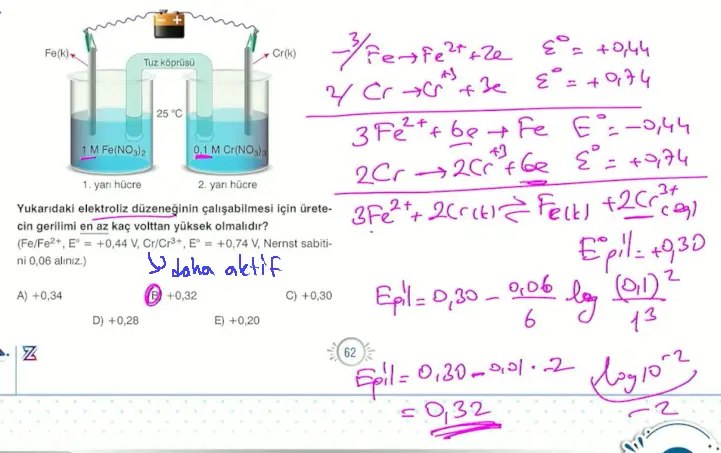 Fe(k)
Cr(k)
Tuz köprüsü
25 °C
1 M Fe(NO₃)₂
0,1 M Cr(NO₃)₃
1. yarı hücre
2. yarı hücre
Yukarıdaki elektroliz düzeneğinin çalışabilmesi içinürete-
cin gerilimi en az kaç volttan yüksek olmalıdır?
(Fe/Fe²⁺, E° = +0,44 V, Cr/Cr³⁺, E° = +0,74 V, Nernst sabiti-
ni 0,06 alınız.)
daha aktif
A) +0,34
B) +0,32
C) +0,30
D) +0,28
E) +0,20
62
-3/ Fe → Fe²⁺ + 2e E° = +0,44
2/ Cr → Cr⁺³ + 3e E° = +0,74
3Fe²⁺ + 6e → Fe E° = -0,44
2Cr → 2Cr⁺³ + 6e E° = +0,74
3Fe²⁺ + 2Cr(k) ⇌ Fe(k) + 2Cr³⁺(aq)
E°pil = +0,30
Epil = 0,30 - 0,06/6 log (0,1)²/1³
Epil = 0,30 - 0,01 · -2
log10⁻²
-2
= 0,32